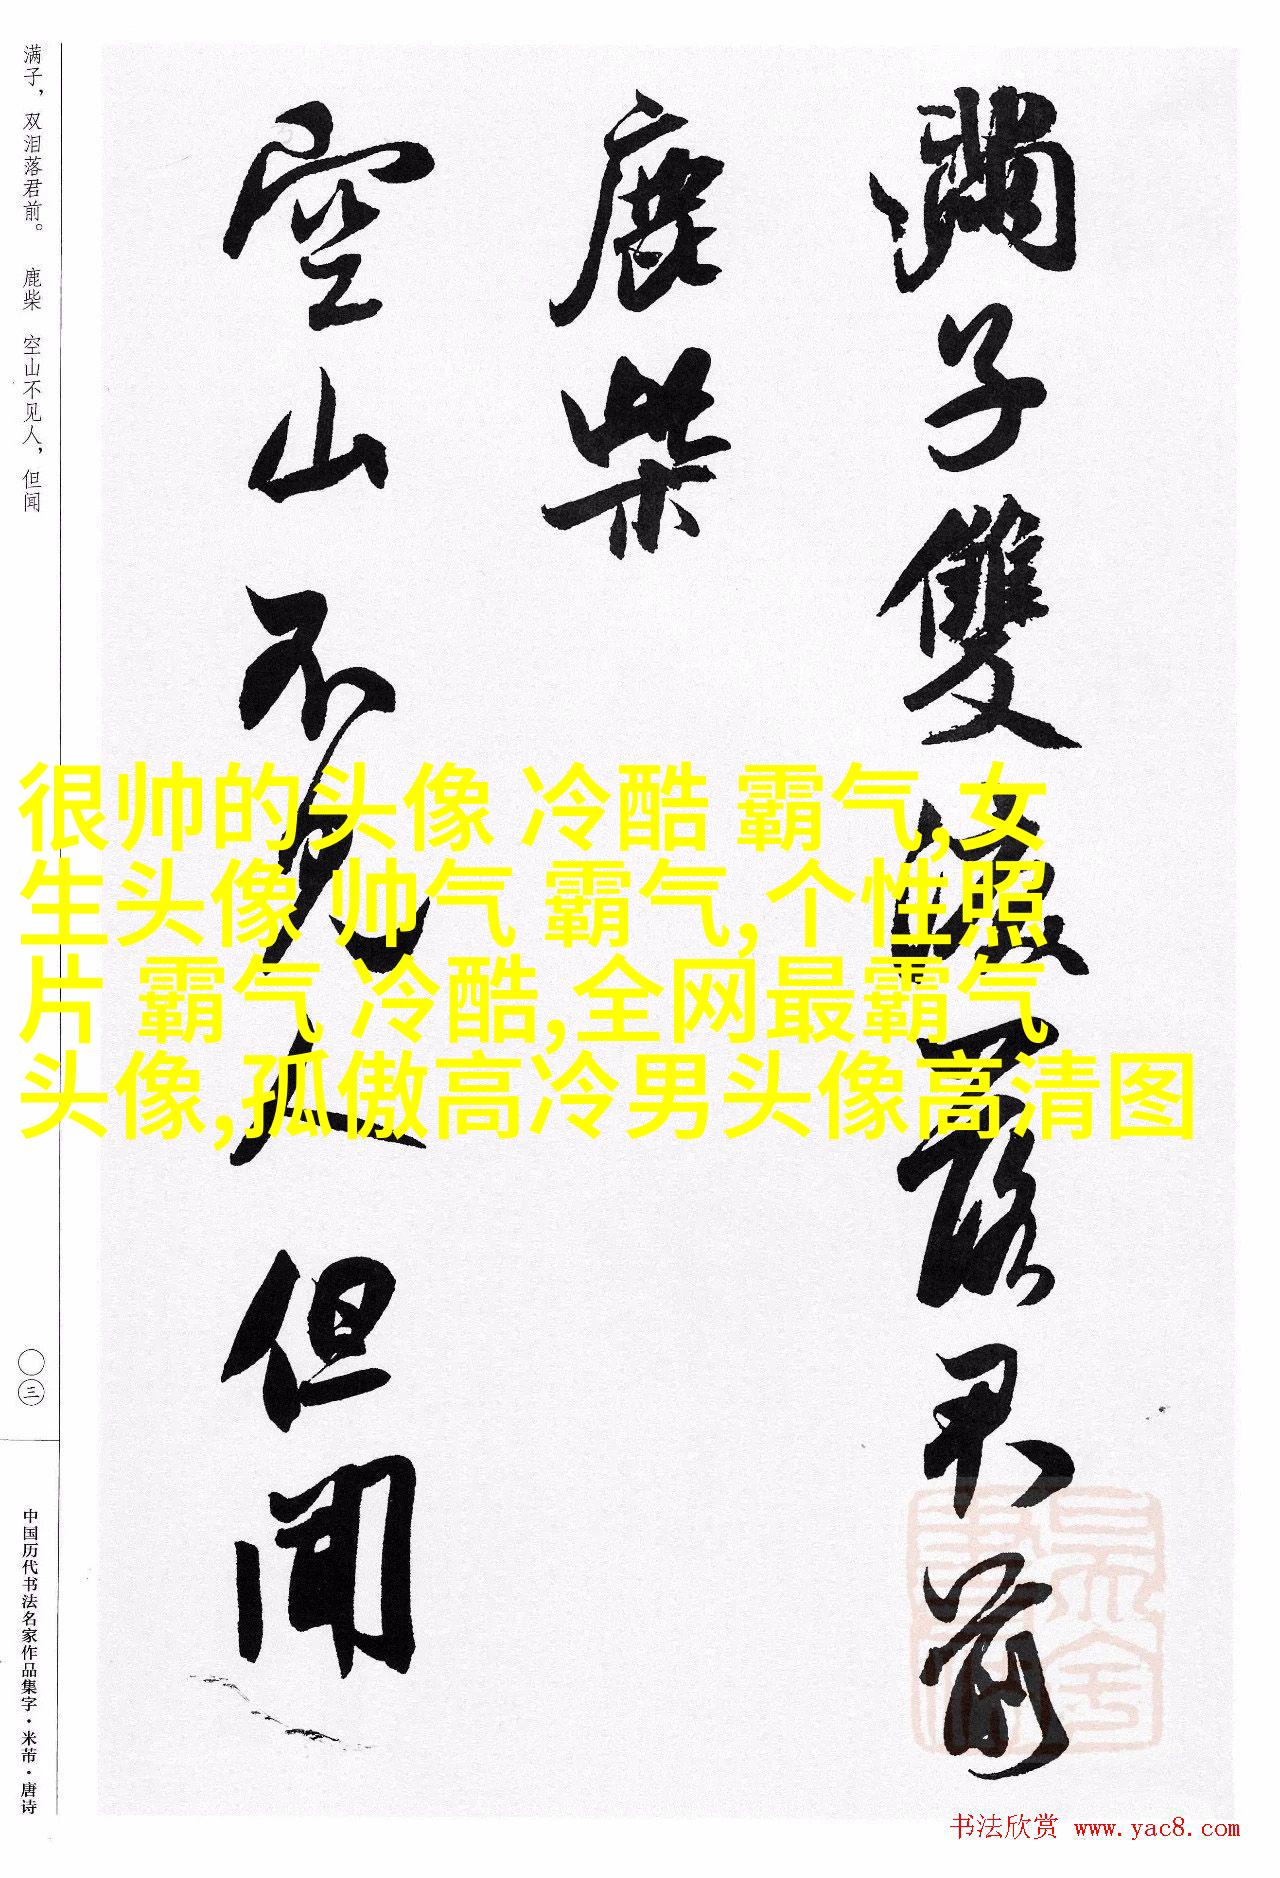 滿子雙淚落君前
鹿柴
空山不見人但聞
满子，双泪落君前。 鹿柴 空山不见人，但闻
〇三
中国历代书法名家作品集字·米芾·唐诗
很帅的头像 冷酷 霸气,女
生头像 帅气 霸气,个性照
片 霸气 冷酷,全网最霸气
头像,孤傲高冷男头像高清图
书法欣赏 www.yac8.com